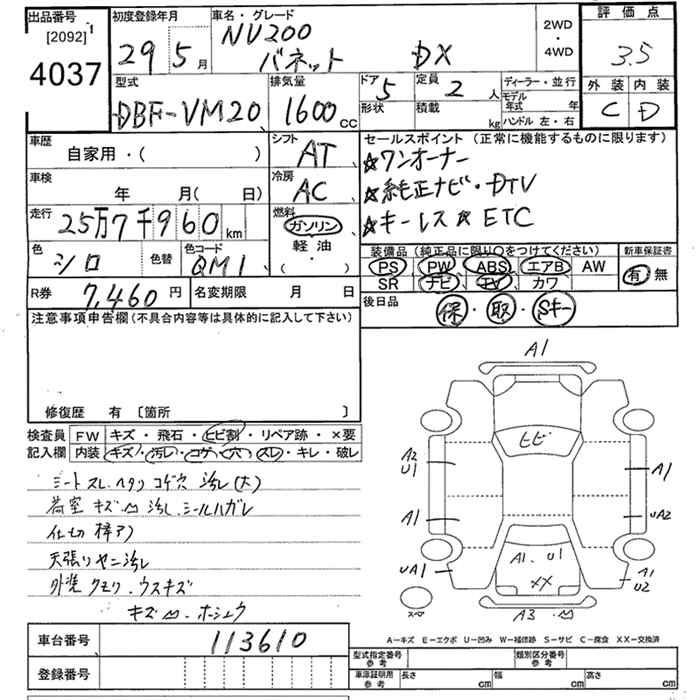 出品番号 初度登録年月 車名・グレード 2WD ・ 4WD 評価点
[2092] 1
4037 29 5月 NV200 バネット DX 3.5
型式 排気量 ドア 定員 ディーラー・並行 外装 内装
DBF-VM20 1600cc 5 2人 モデル年式 年 C D
形状 積載 kg ハンドル 左・右
車歴 シフト セールスポイント (正常に機能するものに限ります)
自家用・( ) AT ☆ワンオーナー
車検 冷房 ☆純正ナビ・DTV
年 月( 日) AC ☆キーレス☆ETC
走行 燃料
25万7千960km ガソリン
色 色替 色コード 軽油 装備品 (純正品に限り〇をつけてください) 新車保証書
シロ QM1 ( ・ ) PS PW ABS エアB AW 有 無
SR ナビ TV カワ
R券 7,460円 名変期限 月 日 後日品
保・取・Sキー
注意事項申告欄(不具合内容等は具体的に記入して下さい)
修復歴 有 [箇所 ]
検査員 FW キズ・飛石・ヒビ割・リペア跡・×要
記入欄 内装 キズ・汚レ・コゲ・穴・スレ・キレ・破レ
シートスレ.ヘタリ コゲ穴 汚レ(大)
荷室 キズ 凹 汚レ.シールハガレ
仕切 棒アリ
天張リ ヤニ汚レ
外装 クモリ.ウスキズ
キズ凹.ホシュウ
A1
ヒビ
A2
U1 A1
A1 UA2
A1 U1
UA1 XX A1
U2
スペ A3.凹
A−キズ E−エクボ U−凹み W−補修跡 S−サビ C−腐食 XX−交換済
車台番号 113610
型式指定番号 参考 類別区分番号 参考
登録番号 車庫証明用 参考 長さ cm 幅 cm 高さ cm